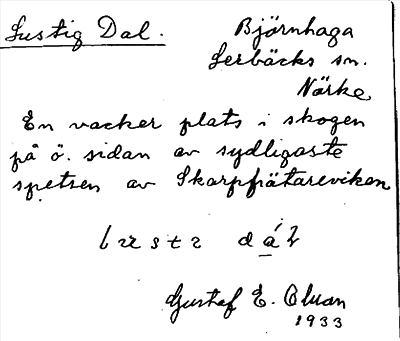 Lustig Dal.
Björnhaga
Lerbäcks sn.
Närke
En vacker plats i skogen
på ö. sidan av sydligaste
spetsen av Skarpfrätareviken
Gustaf E.
1933